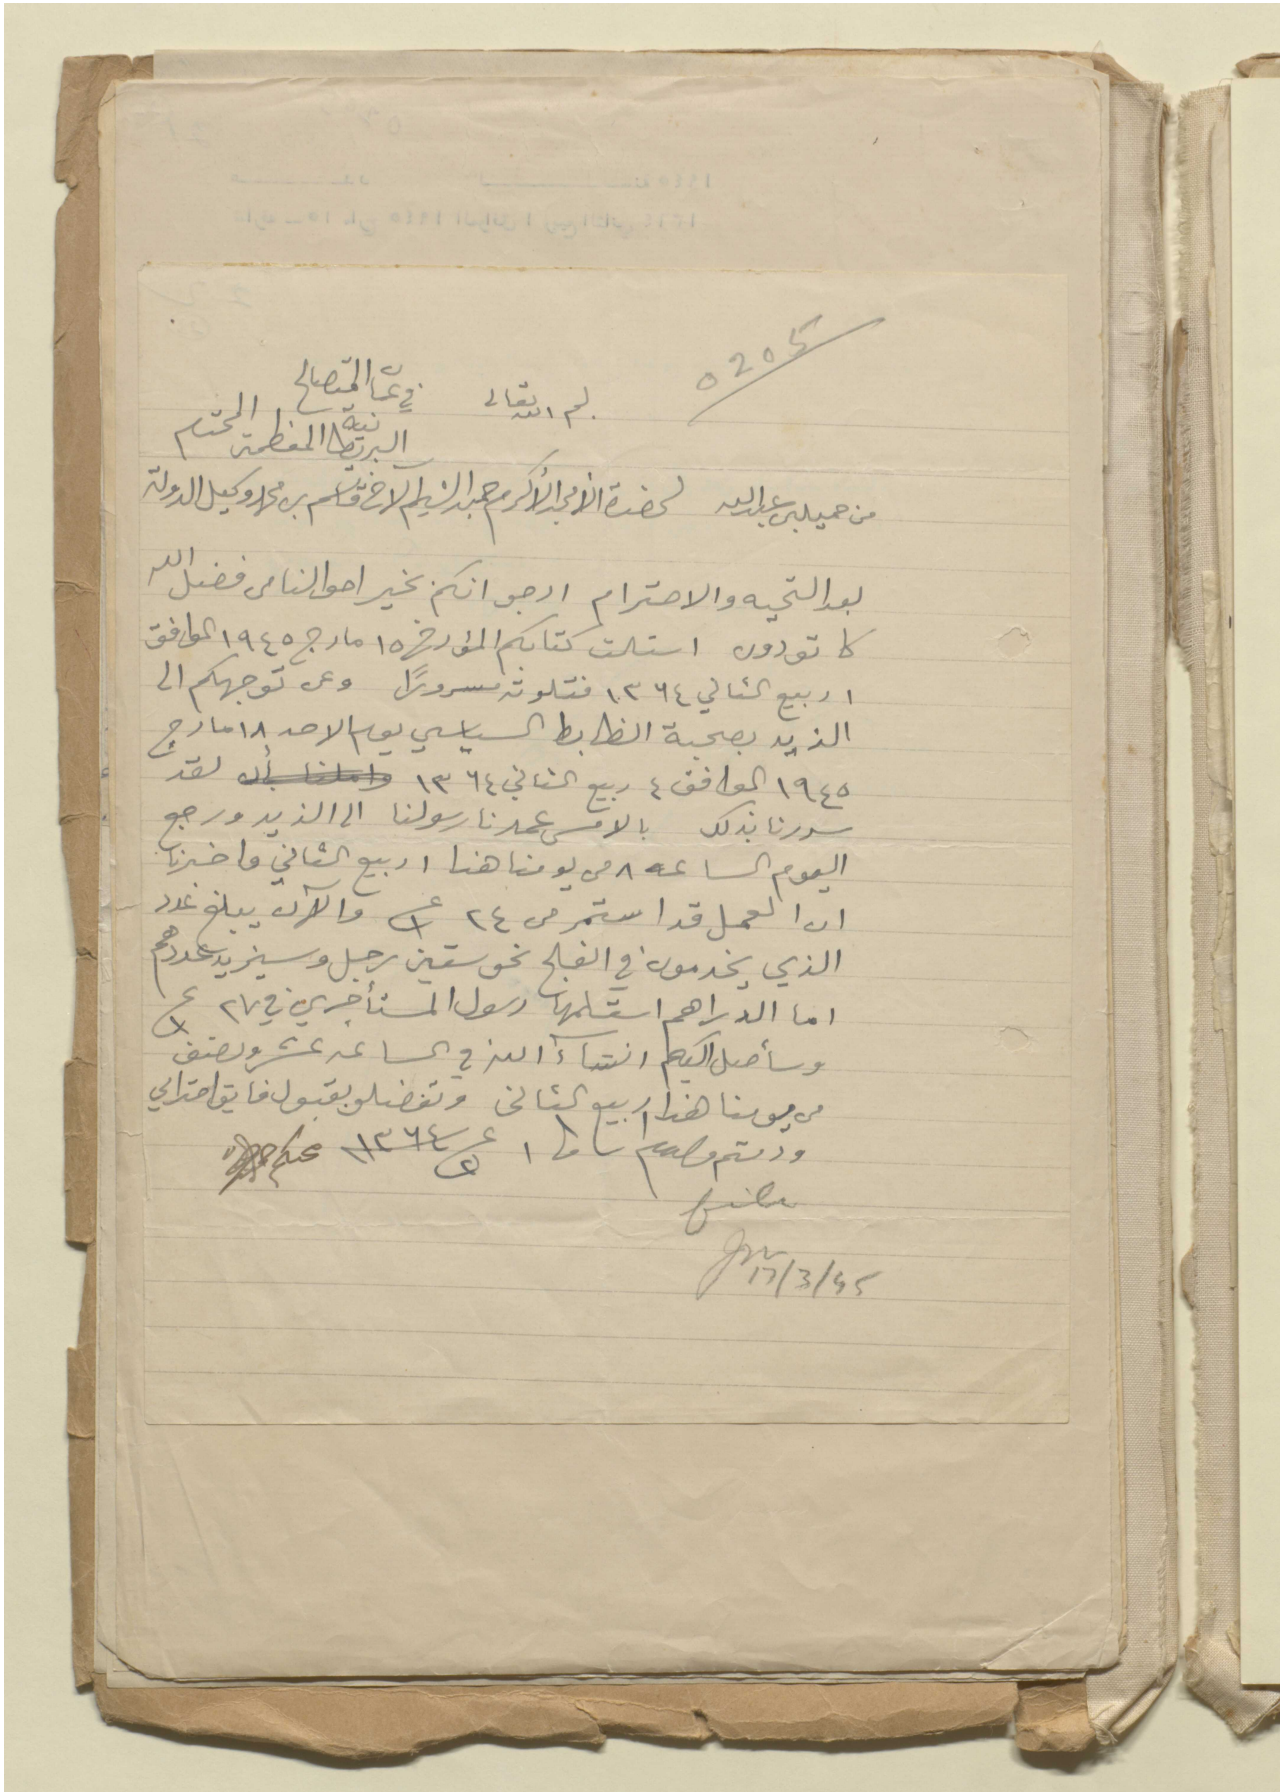 ٥٢٥٤
بسم الله تعالى
في عمان القنصل
البريطانية المعظمة المحترم
من حميد بن عبدالله لحضرة الأمجد الأكرم الشيم الأخ قاسم بن محمد وكيل الدولة
بعد التحيه والاحترام ارجو انكم بخير احوالنا من فضل الله
كما تودون استلمت كتابكم المؤرخ ١٥ مارچ ١٩٤٥ الموافق
١ ربيع الثاني ١٣٦٤ فتلوته مسرورًا وعن توجهكم الى
الذيد بصحبة الظابط السياسي يوم الاحد ١٨ مارچ
١٩٤٥ الموافق ٤ ربيع الثاني ١٣٦٤ لقد
سررنا بذلك بالامس عمدنا رسولنا الى الذيد ورجع
اليوم الساعه ٨ من يومنا هذا ١ ربيع الثاني واخبرنا
ان العمل قد استمر من ٢٤ ع١ والآن يبلغ عدد
الذي يخدمون في الفلج نحو ستين رجل وسيزيد عددهم
اما الدراهم استلمها رسول المستأجرين في ٢٧ ع١
وسأصل اليكم انشآء الله في الساعه عشر ونصف
من يومنا هذا ١ ربيع الثاني وتفضلو بقبول فايق احترامي
ودمتم ١ ع٢ ١٣٦٤
17/3/45